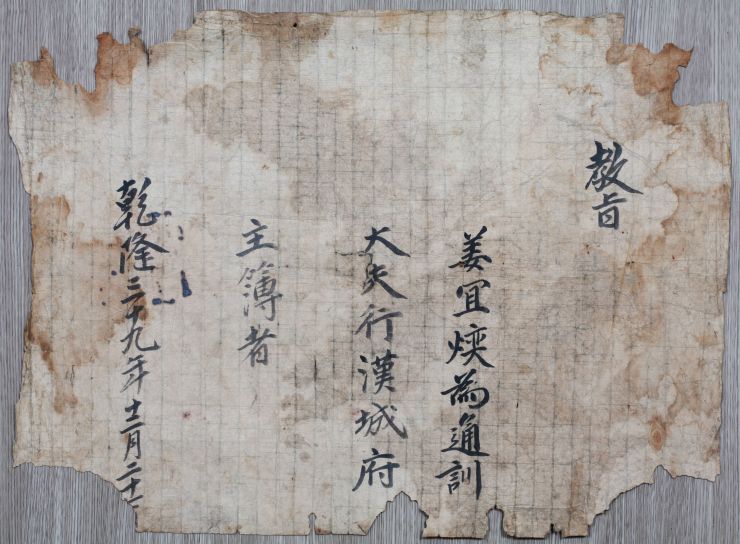 教旨
姜宜煐為通訓
大夫行漢城府
主簿者
乾隆三十九年十二月二十